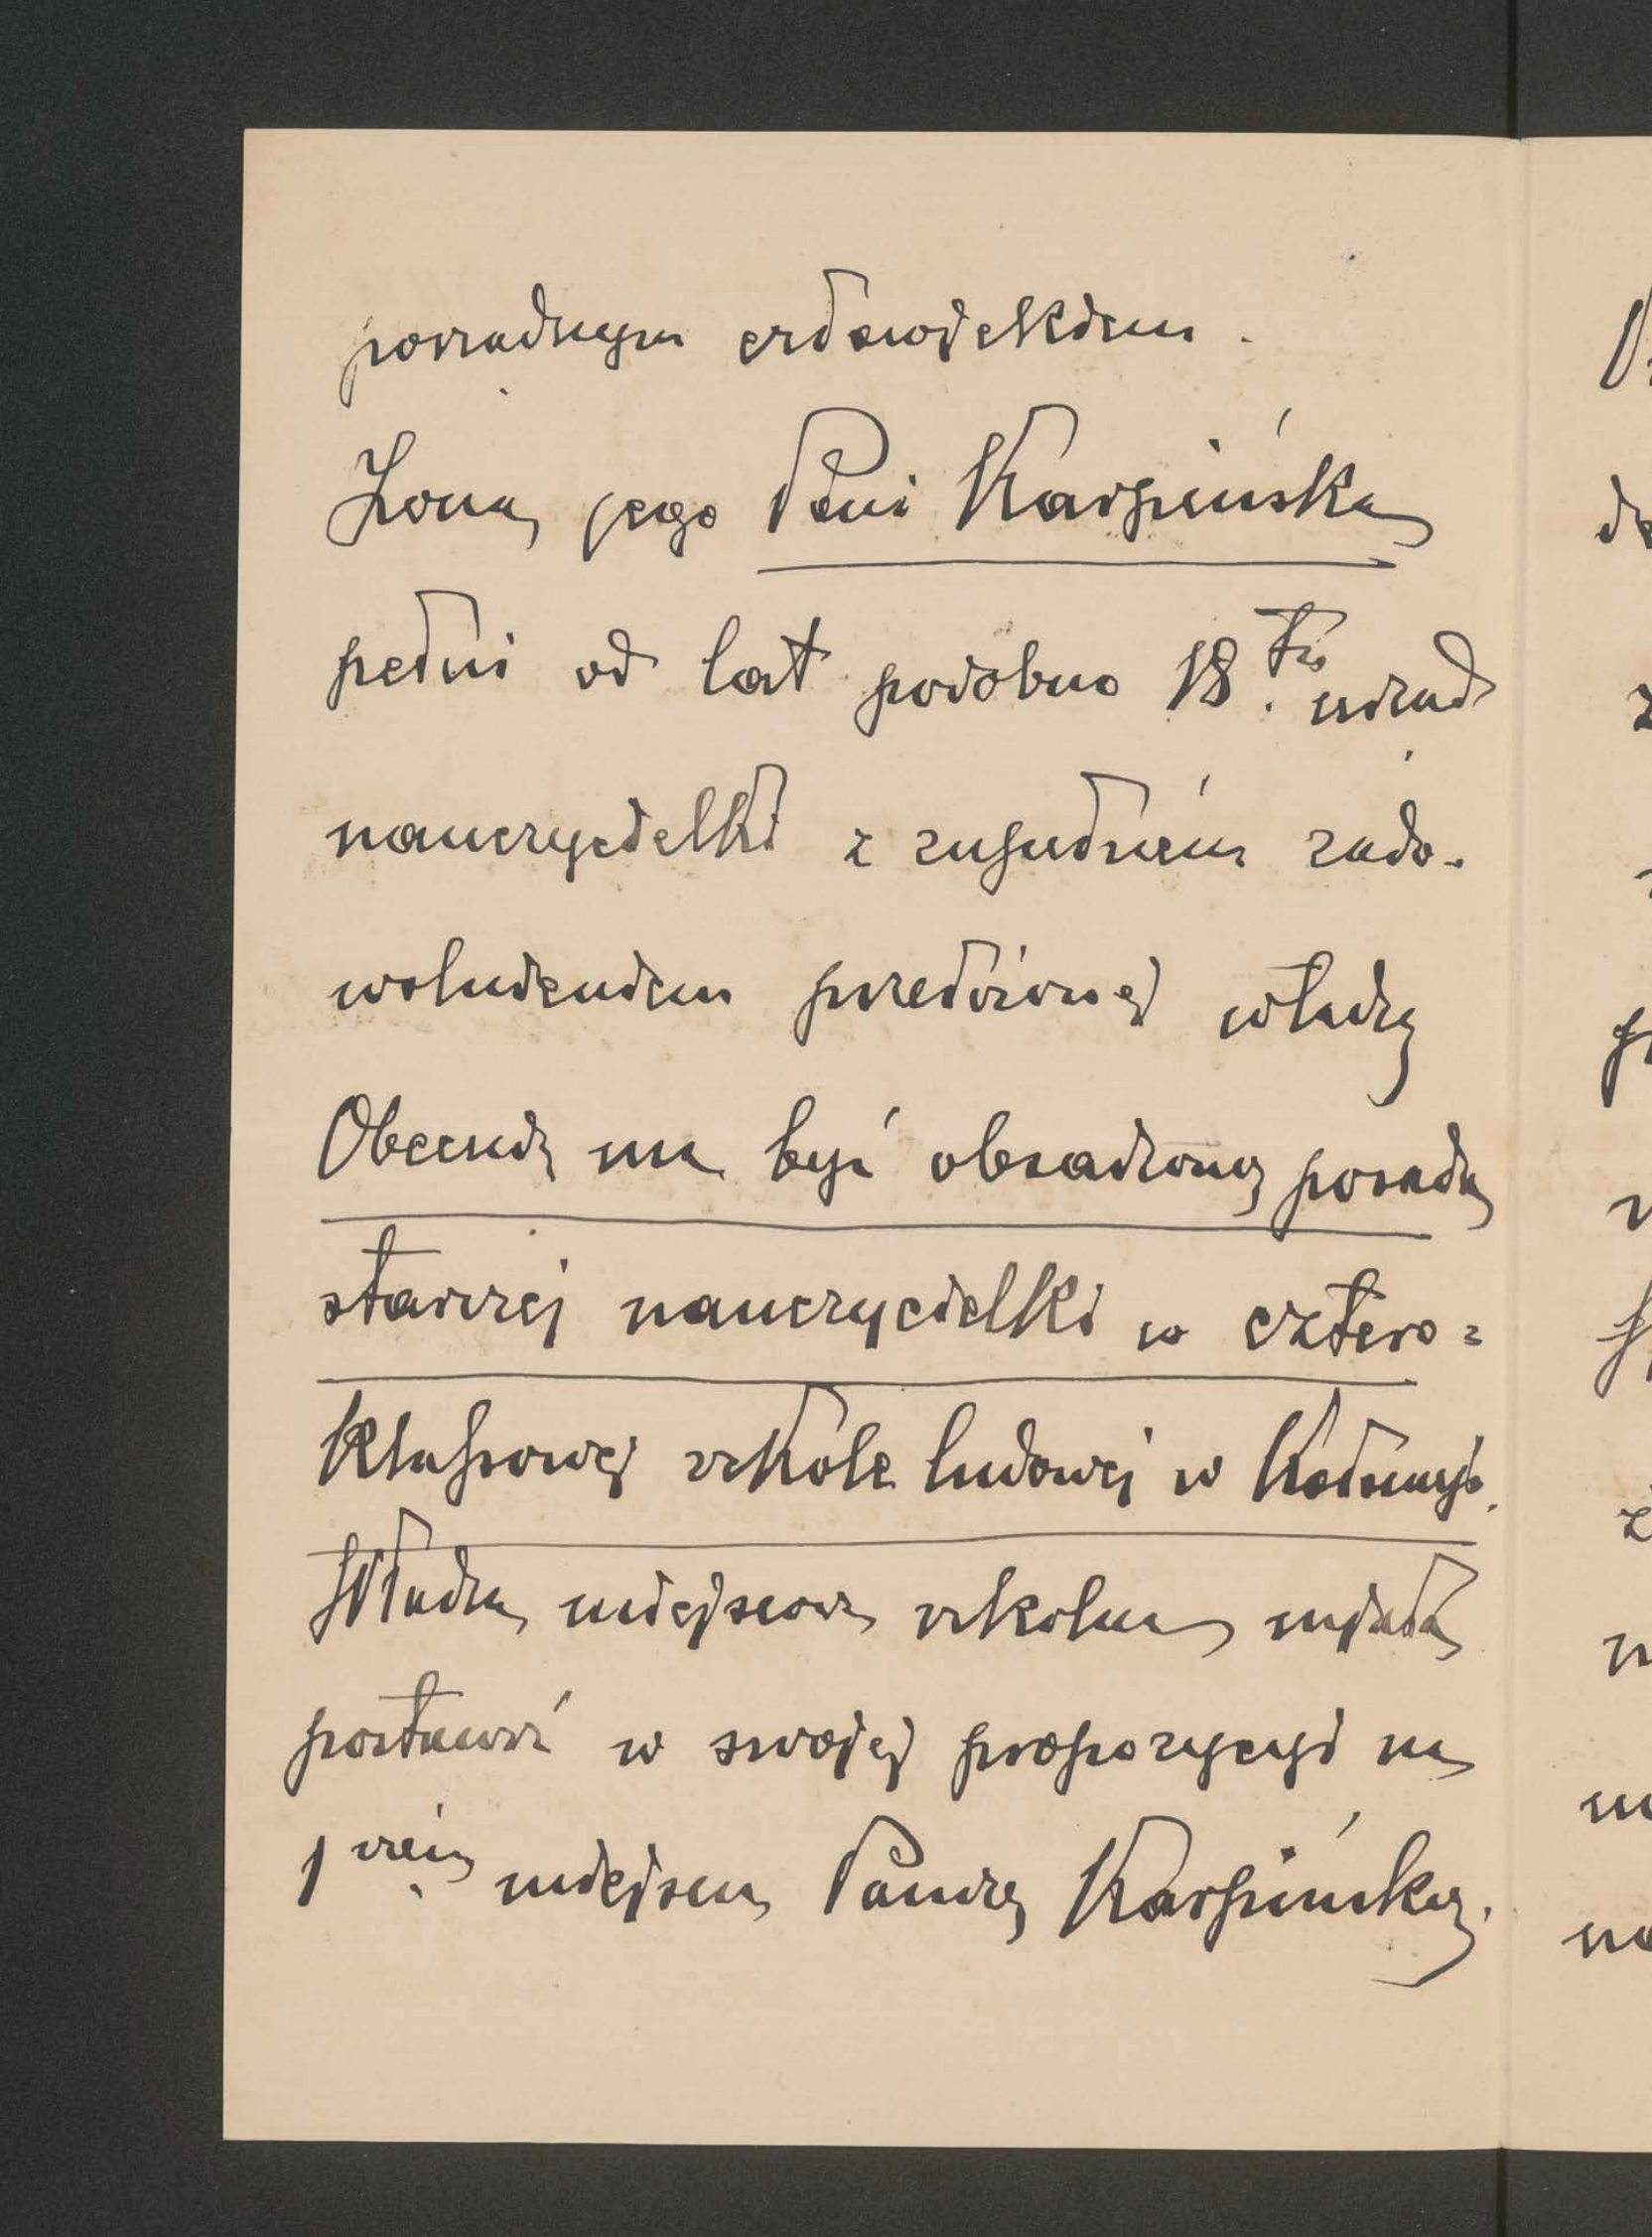 porządnym człowiekiem.
Żona jego Pani Karpińska
pełni od lat podobno 18.tu urząd
nauczycielki z zupełném zado-
wolnieniem przełożonej władzy
Obecnie ma być obsadzoną posada
starszej nauczycielki w cztero=
klassowej szkole ludowej w Kołomyi.
Władza miejscowa szkolna miała
postawić w swojej propozycyi na
1wszém miejscu Panią Karpińską.